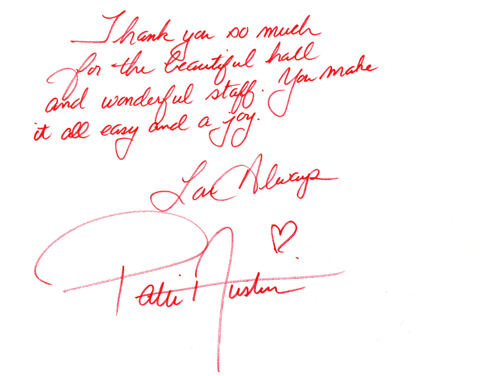 Thank you so much
for the beautiful hall
and wonderful staff. You make
it all easy and a joy.
Love Always
Patti Austin